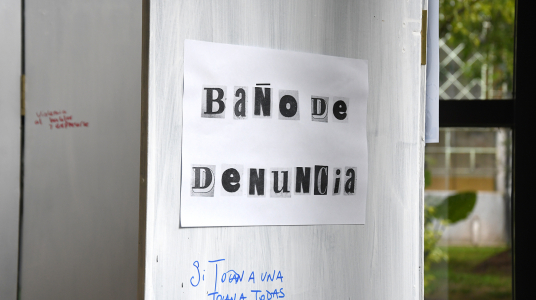 BaÑo De
DenunCia
Si TOCAN A UNA
TOCAN A TODAS